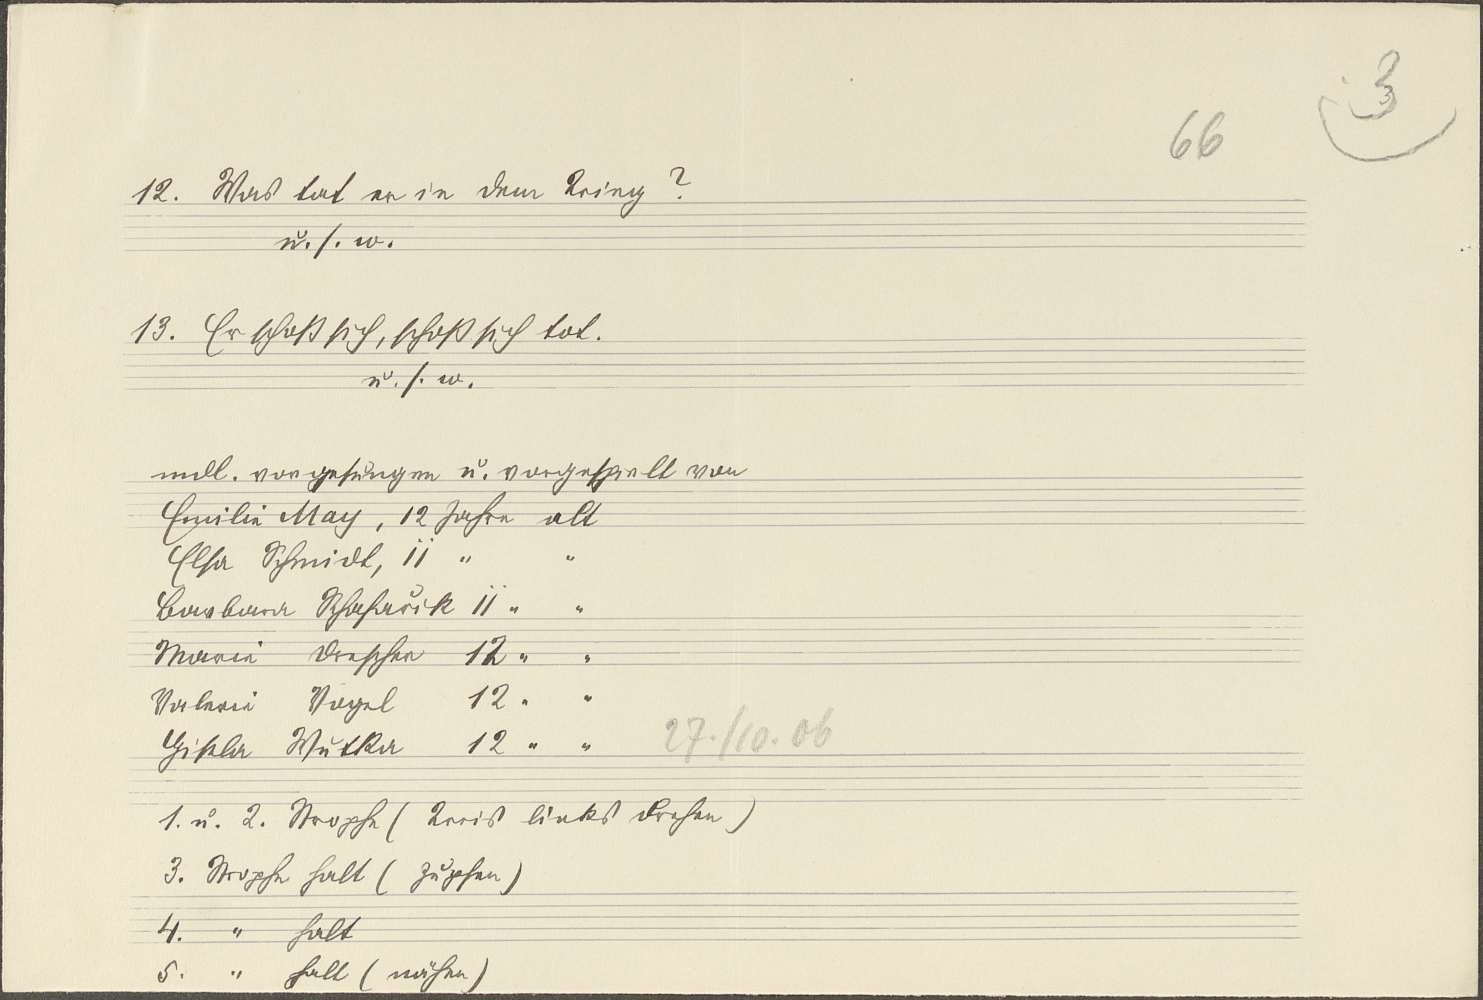 3
66
12. Was tat er in dem Krieg?
u. s. w.
13. Er schoß sich, schoß sich tot.
u. s. w.
mdl. vorgesungen u. vorgespielt von
Emilie May, 12 Jahre alt
Elsa Schmidt, 11 " "
Barbara Schafarik 11 " "
Marie Drescher 12 " "
Valerie Vogel 12 " "
Gisela Wutka 12 " " 27./10. 06
1. u. 2. Strophe (Kreis links drehen)
3. Strophe halt (zupfen)
4. " halt
5. " halt (nähen)